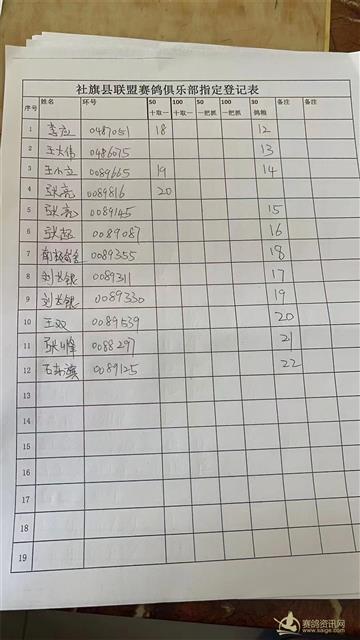 社旗县联盟赛鸽俱乐部指定登记表
序号 姓名 环号 50 十取一 100 十取一 50 一把抓 100 一把抓 30 鸽王 备注 备注
1 李应 0487051 18 12
2 王大伟 0486075 13
3 王小立 0089665 19 14
4 张亮 0089816 20
5 张亮 0089145 15
6 张超 0089087 16
7 0089355 18
8 刘长银 0089311 17
9 刘长银 0089330 19
10 王双 0089539 20
11 张峰 0088297 21
12 0089125 22
13
14
15
16
17
18
19
赛鸽资讯网
www.saige.com